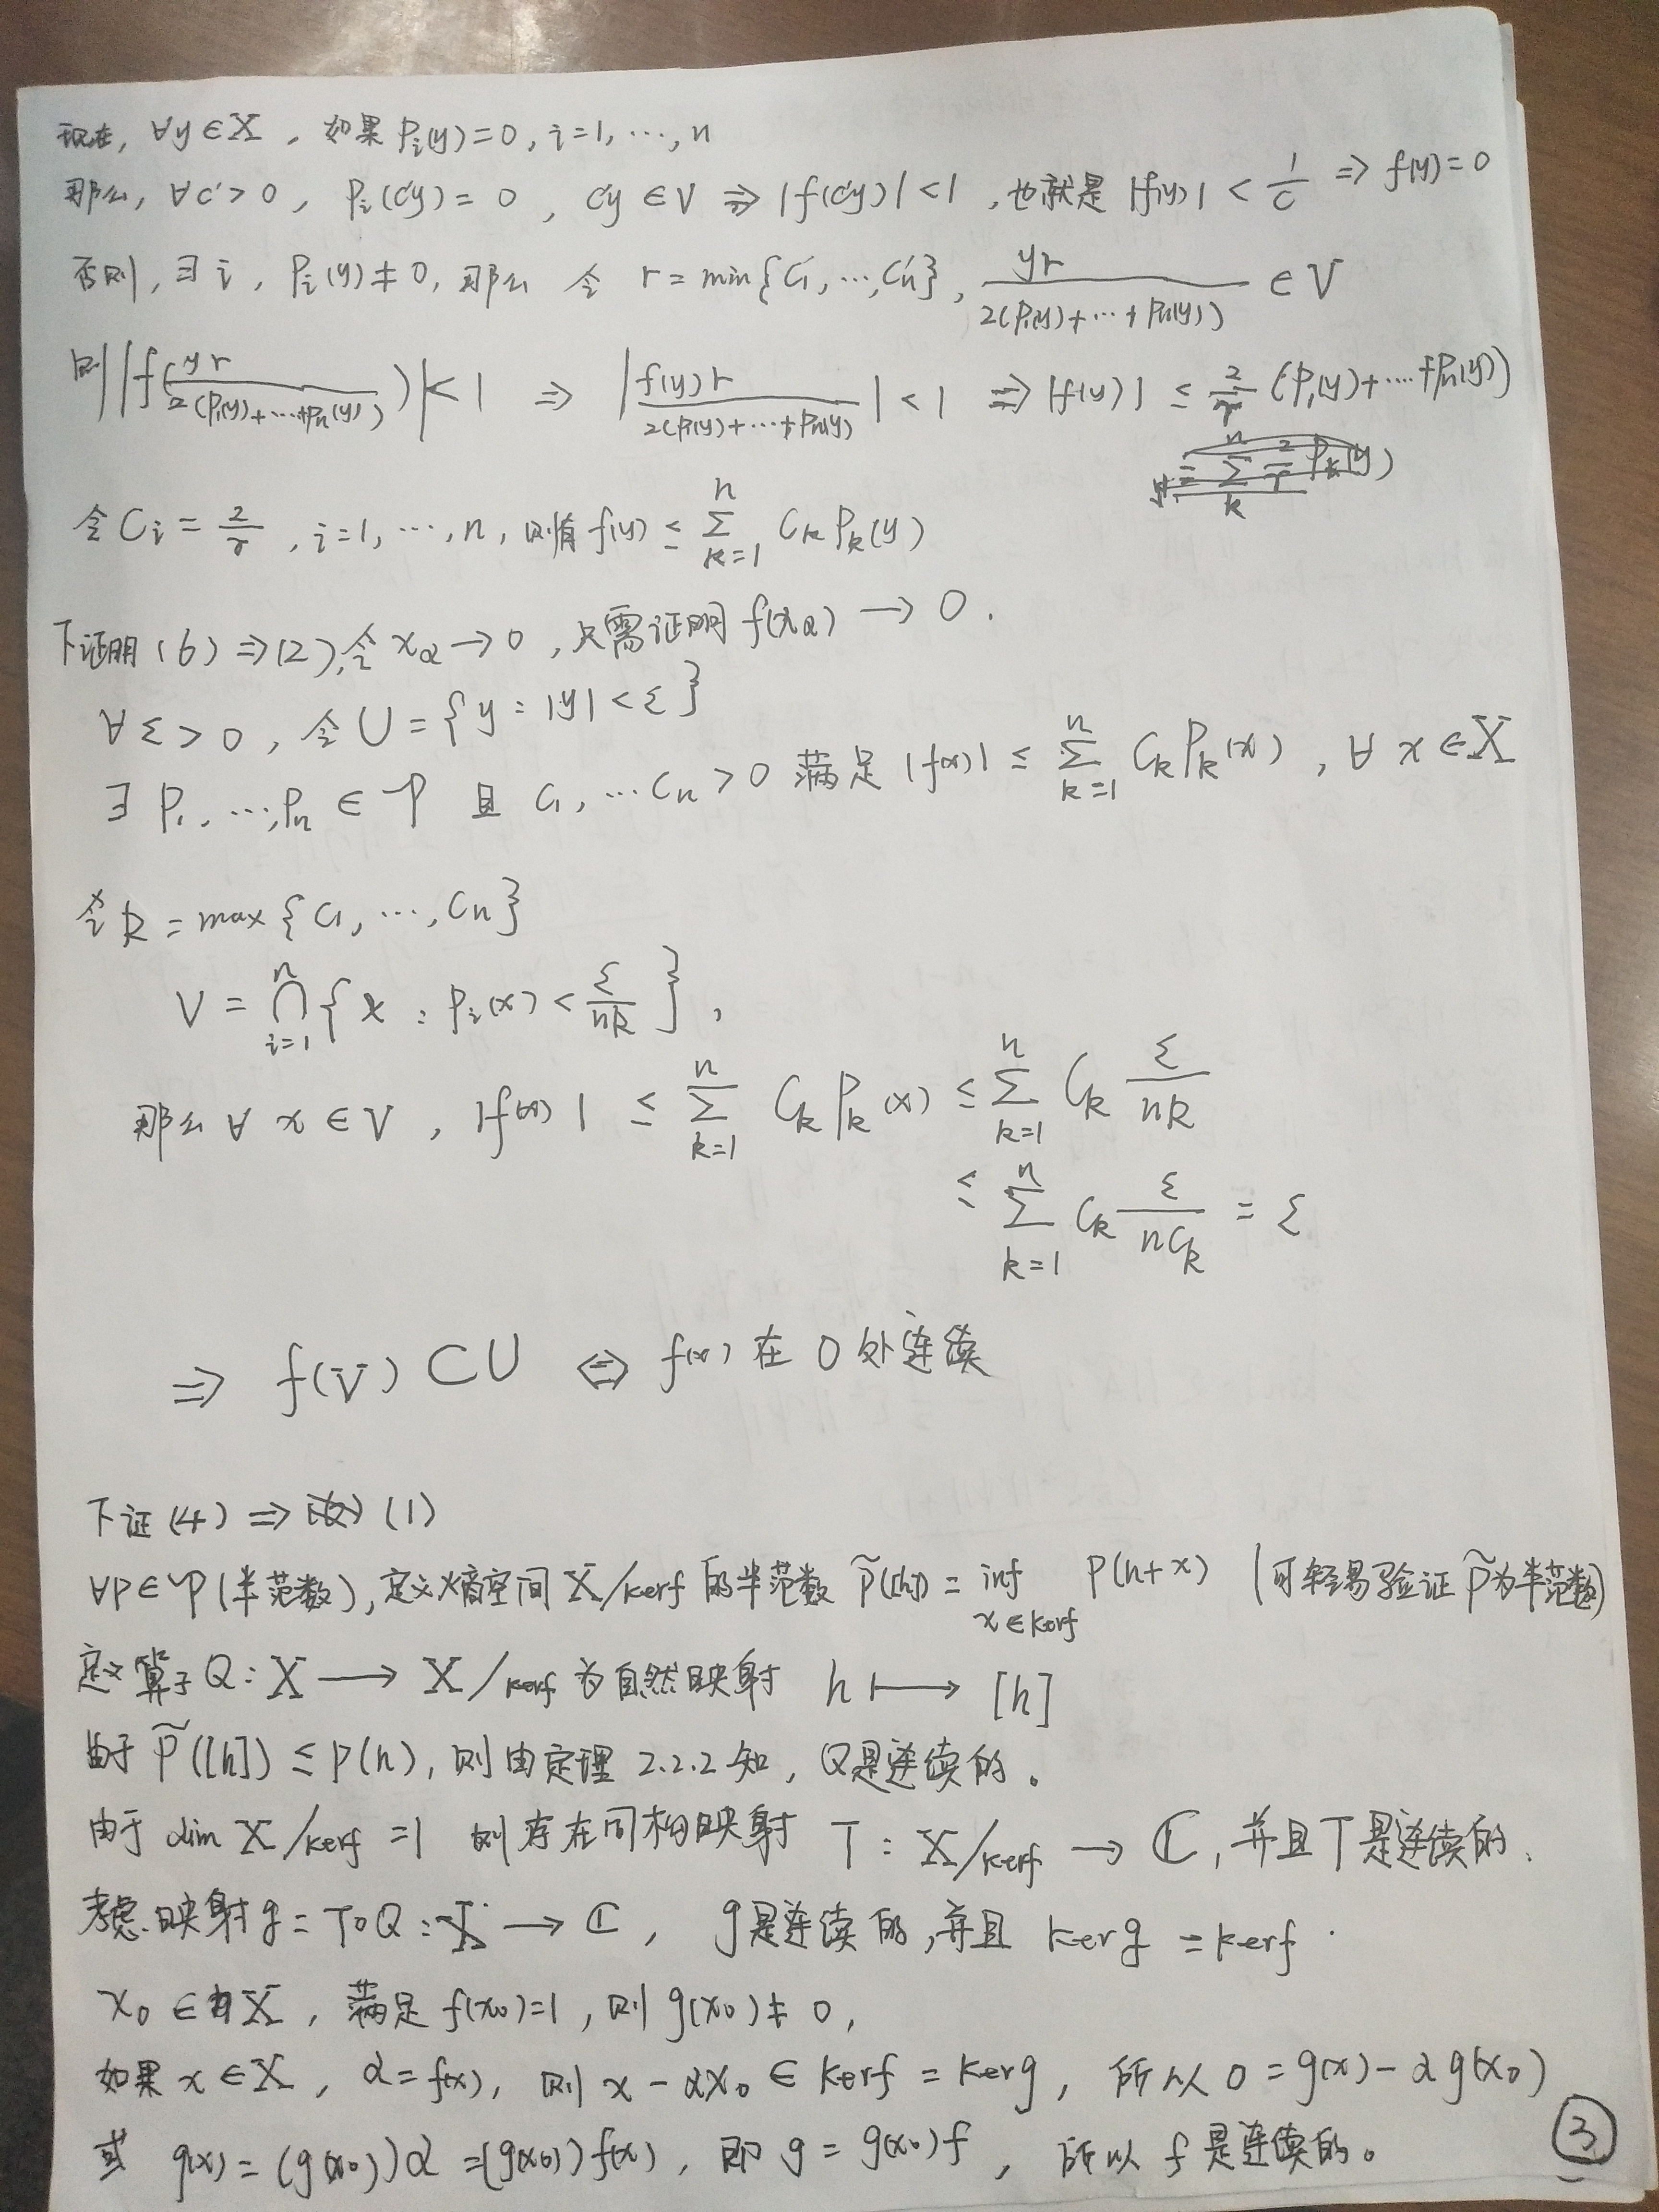 现在, ∀y∈X, 如果 Pᵢ(y)=0, i=1, …, n
那么, ∀c'>0, Pᵢ(c'y)=0, c'y∈V ⇒ |f(c'y)|<1, 也就是 |f(y)| < 1/c' ⇒ f(y)=0
否则, ∃i, Pᵢ(y)≠0, 那么 令 r=min{c₁', …, cₙ'}, yr/2(P₁(y)+⋯+Pₙ(y)) ∈V
则 |f(yr/2(P₁(y)+⋯+Pₙ(y)))|<1 ⇒ |f(y)r/2(P₁(y)+⋯+Pₙ(y))|<1 ⇒ |f(y)| ≤ 2/r (P₁(y)+⋯+Pₙ(y))
令 Cᵢ=2/r, i=1, …, n, 则有 f(y) ≤ ∑ₖ₌₁ⁿ CₖPₖ(y)
下证明 (6)⇒(2), 令 x_α→0, 只需证明 f(x_α)→0.
∀ε>0, 令 U={y: |y|<ε}
∃P₁, …, Pₙ∈𝒫 且 C₁, …Cₙ>0 满足 |f(x)| ≤ ∑ₖ₌₁ⁿ CₖPₖ(x), ∀x∈X
令 k=max{C₁, …, Cₙ}
V=⋂ᵢ₌₁ⁿ{x: Pᵢ(x)<ε/nk},
那么 ∀x∈V, |f(x)| ≤ ∑ₖ₌₁ⁿ CₖPₖ(x) ≤ ∑ₖ₌₁ⁿ Cₖ ε/nk
≤ ∑ₖ₌₁ⁿ Cₖ ε/nCₖ = ε
⇒ f(V)⊂U ⇔ f(x) 在 0 处连续
下证 (4)⇒(1)
∀p∈𝒫(半范数), 定义商空间 X/kerf 的半范数 p̃([h])=inf_{x∈kerf} p(h+x) (可轻易验证 p̃ 为半范数)
定义算子 Q: X→X/kerf 为自然映射 h↦[h]
由于 p̃([h]) ≤ p(h), 则由定理 2.2.2 知, Q是连续的。
由于 dim X/kerf =1 则存在同构映射 T: X/kerf→ℂ, 并且T是连续的.
考虑映射 g=T∘Q: X→ℂ, g是连续的, 并且 kerg=kerf.
x₀∈X, 满足 f(x₀)=1, 则 g(x₀)≠0,
如果 x∈X, α=f(x), 则 x-αx₀∈kerf=kerg, 所以 0=g(x)-αg(x₀)
或 g(x)=(g(x₀))α=(g(x₀))f(x), 即 g=g(x₀)f, 所以 f 是连续的。
③